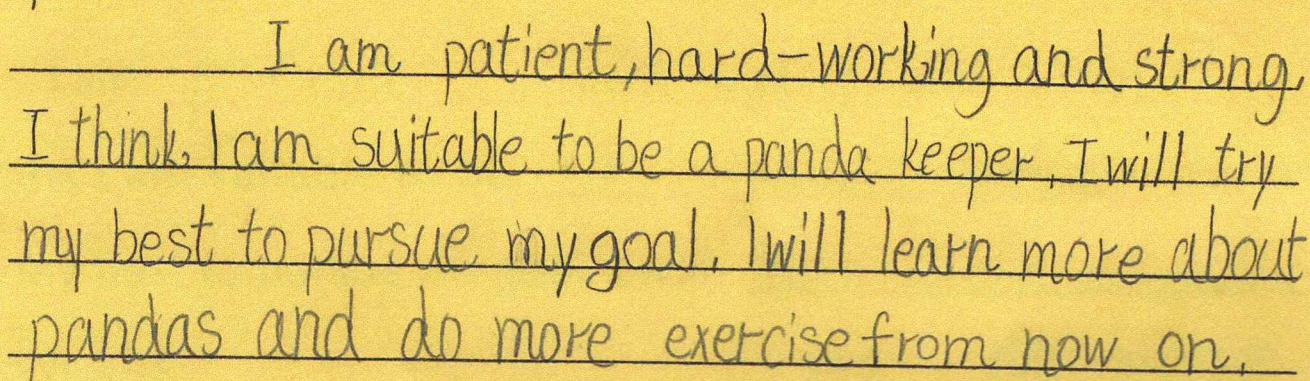 I am patient, hard-working and strong,
I think, I am suitable to be a panda keeper, I will try
my best to pursue my goal. I will learn more about
pandas and do more exercise from now on.